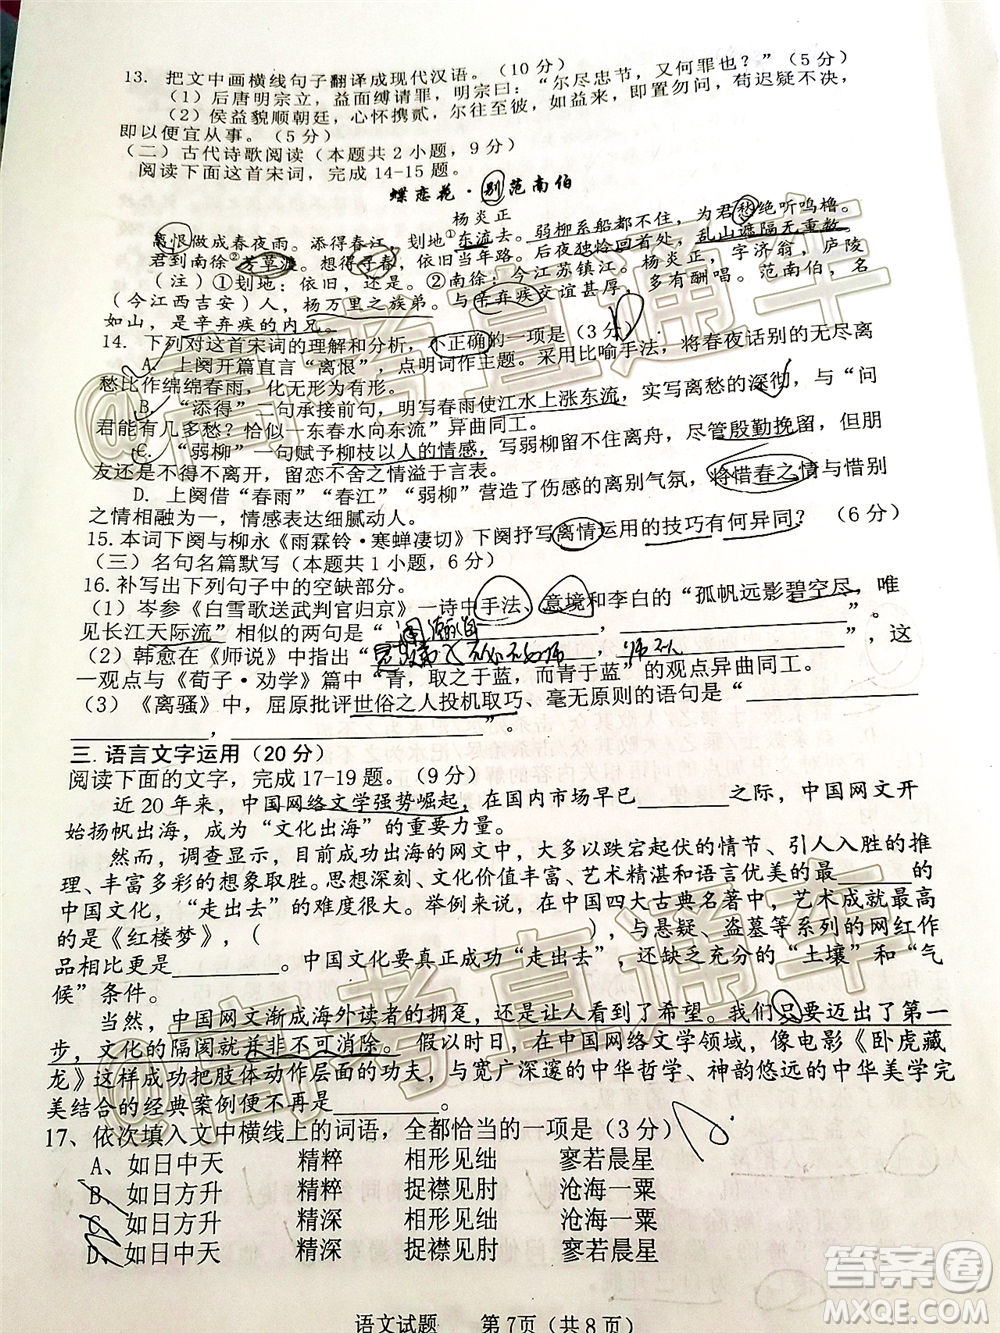 13. 把文中画横线句子翻译成现代汉语。(10分)
(1)后唐明宗立，益面缚请罪，明宗曰：“尔尽忠节，又何罪也？”(5分)
(2)侯益貌顺朝廷，心怀携贰，尔往至彼，如益来，即置勿问，苟迟疑不决，
即以便宜从事。(5分)
(二)古代诗歌阅读(本题共2小题，9分)
阅读下面这首宋词，完成14-15题。
蝶恋花·别范南伯
杨炎正
离恨做成春夜雨。添得春江，划地①东流去。弱柳系船都不住，为君愁绝听鸣橹。
君到南徐②芳草渡。想得寻春，依旧当年路。后夜独怜回首处，乱山遮隔无重数
(注)①划地：依旧，还是。②南徐：今江苏镇江。杨炎正，字济翁，庐陵
(今江西吉安)人，杨万里之族弟。与辛弃疾交谊甚厚，多有酬唱。范南伯，名
如山，是辛弃疾的内兄。
14. 下列对这首宋词的理解和分析，不正确的一项是(3分)
A. 上阕开篇直言“离恨”，点明词作主题。采用比喻手法，将春夜话别的无尽离
愁比作绵绵春雨，化无形为有形。
B. “添得”一句承接前文，春雨使江水上涨东流，写离愁的深彻，与“问
君能有几多愁？恰似一东春水向东流”异曲同工。
C. “弱柳”一句赋予柳枝以人的情感，写弱柳留不住离舟，尽管殷勤挽留，但朋
友还是不得不离开，留恋不舍之情溢于言表。
D. 上阕借“春雨”“春江”“弱柳”营造了伤感的离别气氛，将惜春之情与惜别
之情相融合，情感表达细腻动人。
15. 本词下阕与柳永《雨霖铃·寒蝉凄切》下阕抒写离情运用的技巧有何异同？(6分)
(三)名句名篇默写(本题共1小题，6分)
16. 补写出下列句子中的空缺部分。
(1)岑参《白雪歌送武判官归京》一诗中手法、意境和李白的“孤帆远影碧空尽，唯
见长江天际流”相似的两句是“________，________”。
(2)韩愈在《师说》中指出“________，________”，这
一观点与《荀子·劝学》篇中“青，取之于蓝，而青于蓝”的观点异曲同工。
(3)《离骚》中，屈原批评世俗之人投机取巧、毫无原则的语句是“________
________，________”。
三.语言文字运用(20分)
阅读下面的文字，完成17-19题。(9分)
近20年来，中国网络文学强势崛起，在国内市场早已________之际，中国网文开
始扬帆出海，成为“文化出海”的重要力量。
然而，调查显示，目前成功出海的网文中，大多以跌宕起伏的情节、引人入胜的推
理、丰富多彩的想象取胜。思想深刻、文化价值丰富、艺术精湛和语言优美的最________的
中国文化，“走出去”的难度很大。举例来说，在中国四大古典名著中，艺术成就最高
的是《红楼梦》，(                    )，与悬疑、盗墓等系列的网红作
品相比更________。中国文化要真正成功“走出去”，还缺乏充分的“土壤”和“气
候”条件。
当然，中国网文渐成海外读者的拥趸，还是让人看到了希望。我们只要迈出了第一
步，文化的隔阂就并非不可消除。假以时日，在中国网络文学领域，像电影《卧虎藏
龙》这样成功把肢体动作层面的功夫，与宽广深邃的中华哲学、神韵悠远的中华美学完
美结合的经典案例便不再是________。
17、依次填入文中横线上的词语，全都恰当的一项是(3分)
A、如日中天 精粹 相形见绌 寥若晨星
B、如日方升 精粹 捉襟见肘 沧海一粟
C、如日方升 精深 相形见绌 沧海一粟
D、如日中天 精深 捉襟见肘 寥若晨星
语文试题 第7页(共8页)
@高考直通车
@高考直通车
答案圈
MXQE.COM